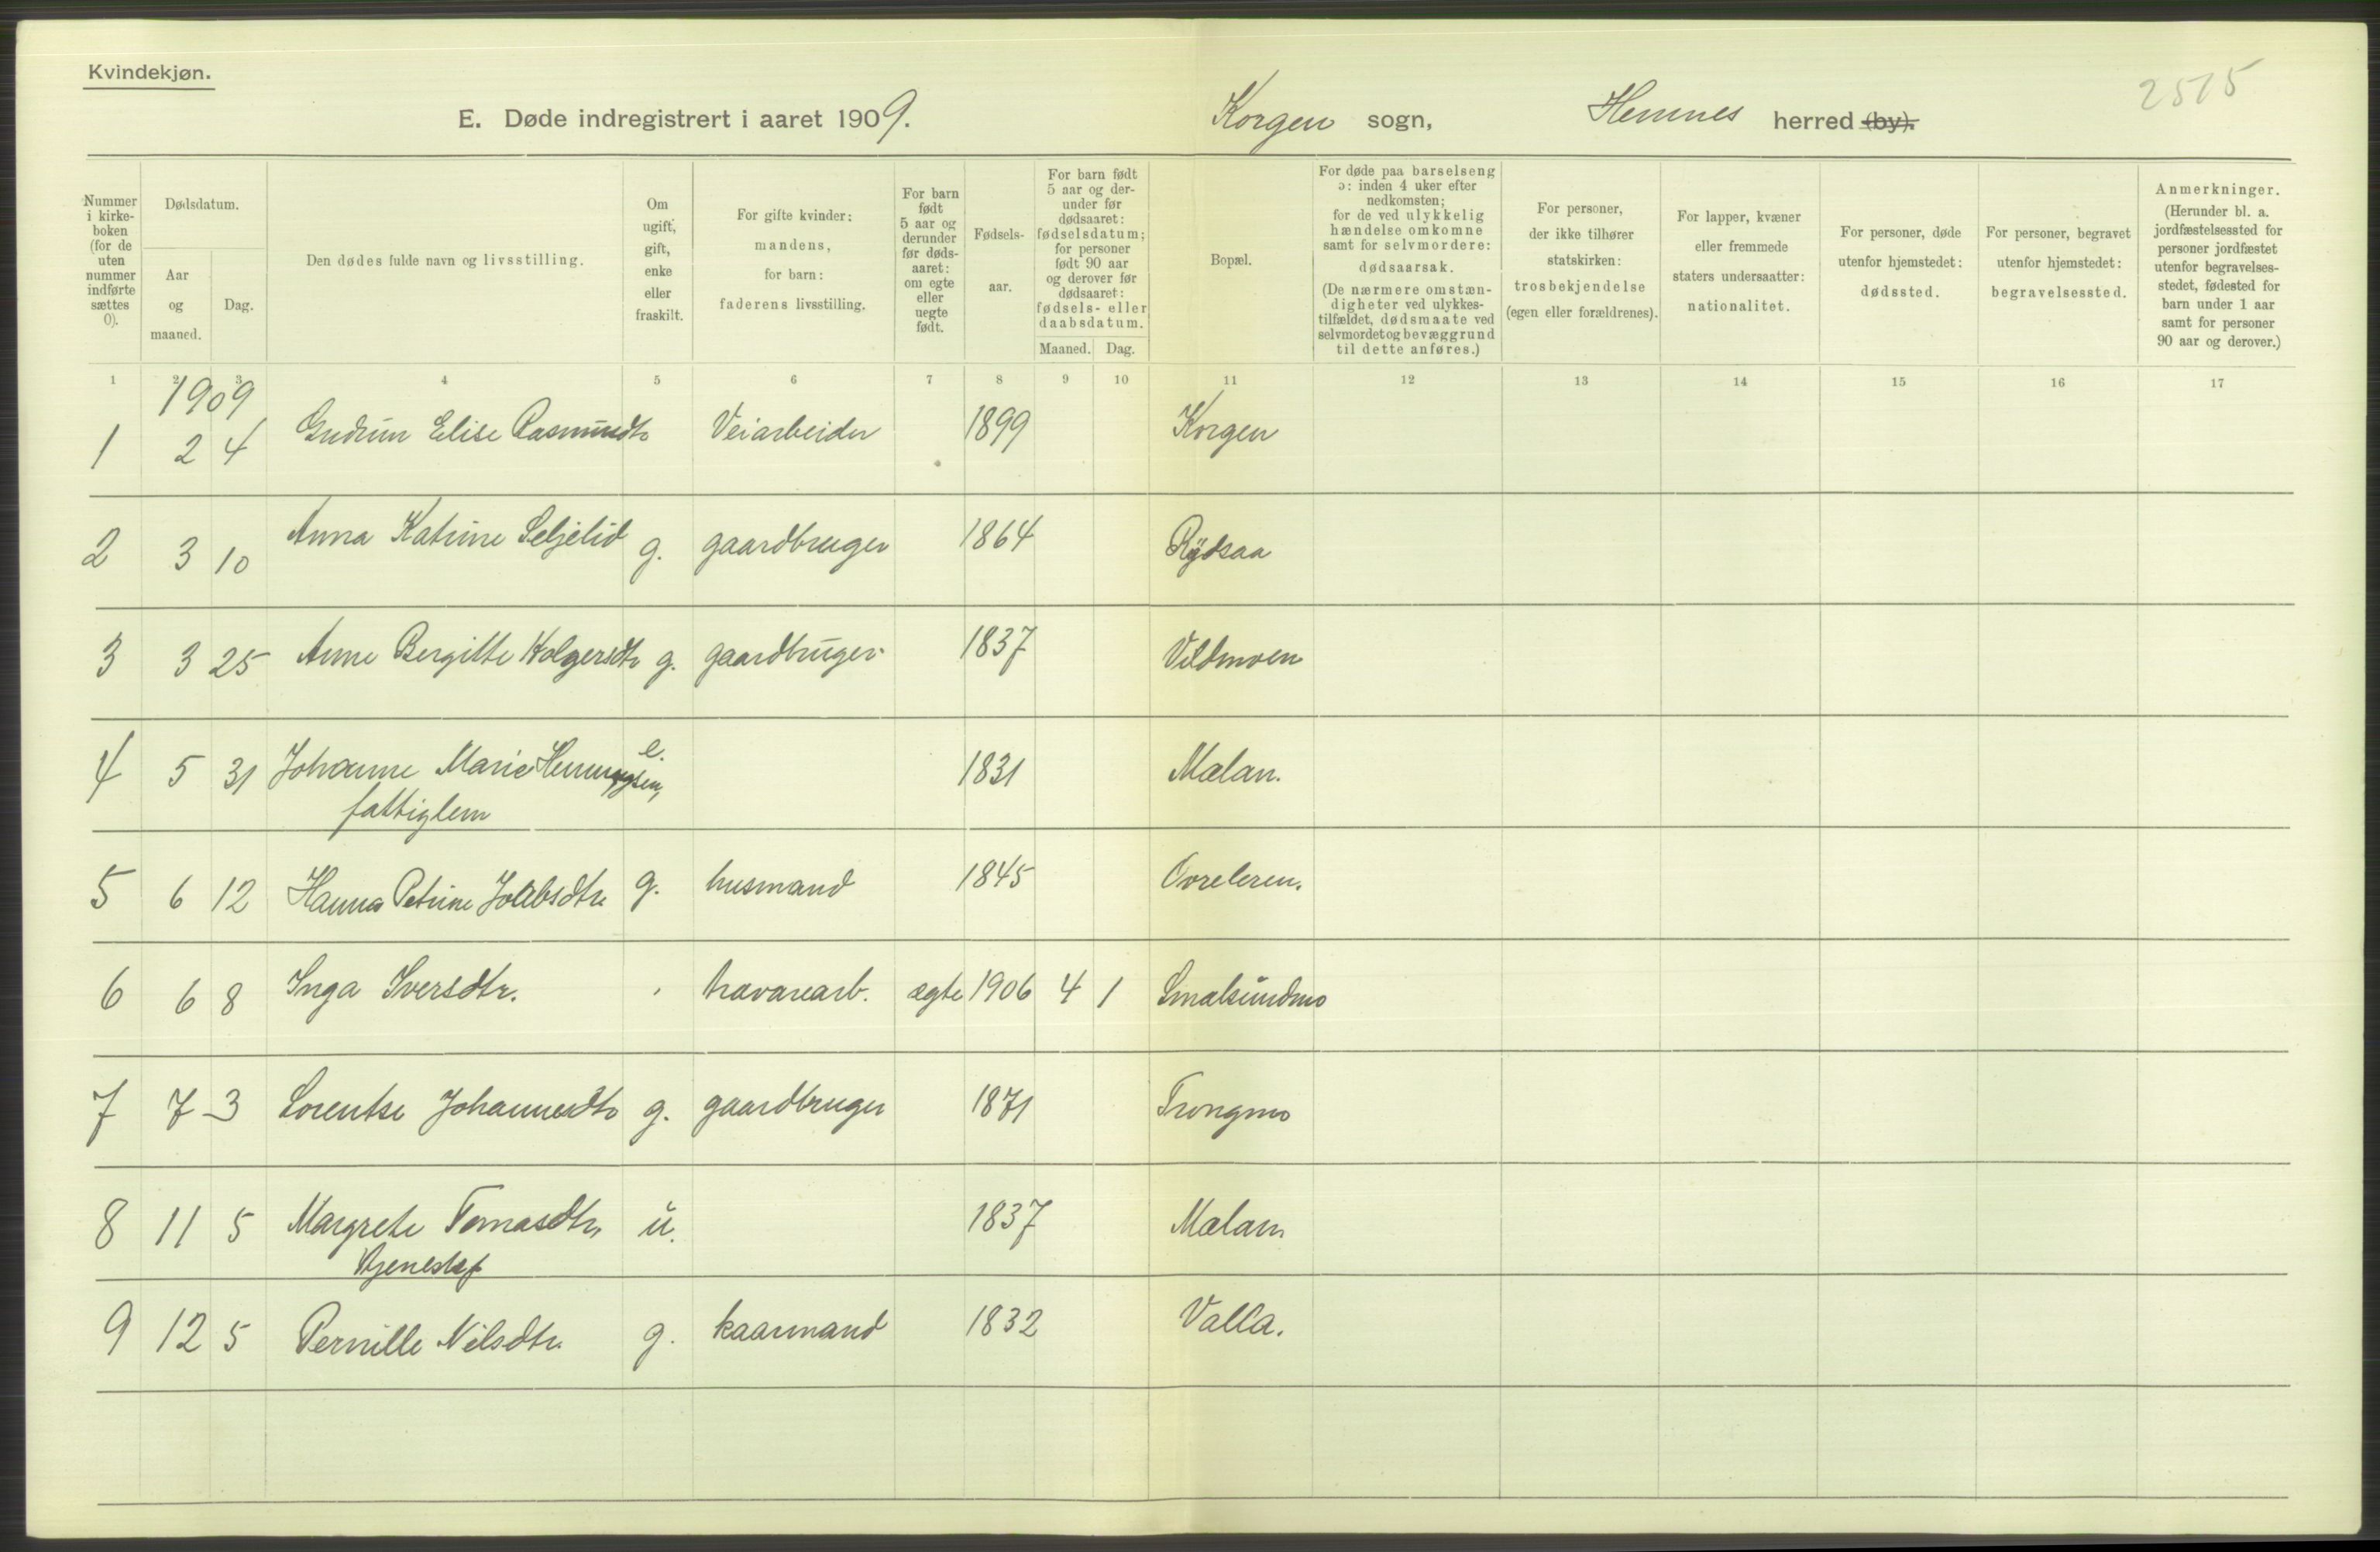 Kvindekjøn.
2515
E. Døde indregistrert i aaret 1909. Korgen sogn, Hemnes herred (by).
Nummer i kirke- boken (for de uten nummer indførte sættes 0).
Dødsdatum.
Aar og maaned.
Dag.
Den dødes fulde navn og livsstilling.
Om ugift, gift, enke eller fraskilt.
For gifte kvinder: mandens, for barn: faderens livsstilling.
For barn født 5 aar og derunder før døds- aaret: om egte eller uegte født.
Fødsels- aar.
For barn født 5 aar og der- under før dødsaaret: fødselsdatum; for personer født 90 aar og derover før dødsaaret: fødsels- eller daabsdatum.
Maaned. Dag.
Bopæl.
For døde paa barselseng ɔ: inden 4 uker efter nedkomsten; for de ved ulykkelig hændelse omkomne samt for selvmordere: dødsaarsak. (De nærmere omstæn- digheter ved ulykkes- tilfældet, dødsmaate ved selvmordet og bevæggrund til dette anføres.)
For personer, der ikke tilhører statskirken: trosbekjendelse (egen eller forældrenes).
For lapper, kvæner eller fremmede staters undersaatter: nationalitet.
For personer, døde utenfor hjemstedet: dødssted.
For personer, begravet utenfor hjemstedet: begravelsessted.
Anmerkninger. (Herunder bl. a. jordfæstelsessted for personer jordfæstet utenfor begravelses- stedet, fødested for barn under 1 aar samt for personer 90 aar og derover.)
1 2 3 4 5 6 7 8 9 10 11 12 13 14 15 16 17
1909
1 2 4 Gudrun Elise Rasmusdtr Veiarbeider 1899 Korgen
2 3 10 Anna Katrine Seljelid g. gaardbruger 1864 Rydsaa
3 3 25 Anne Bergitte Holgersdtr g. gaardbruger 1837 Vildmoen
4 5 31 Johanne Marie Henningsen, e. 1831 Mælan.
fattiglem
5 6 12 Hanna Petrine Jakobsdtr g. husmand 1845 Ovreleren.
6 6 8 Inga Iversdtr. havnearb. ægte 1906 4 1 Smalsundmo
7 7 3 Lorentse Johannesdtr g. gaardbruger 1871 Trongmo
8 11 5 Margrete Tomasdtr, u. 1837 Mælan
9 12 5 Pernille Nilsdtr. g. kaarmand 1832 Valla.